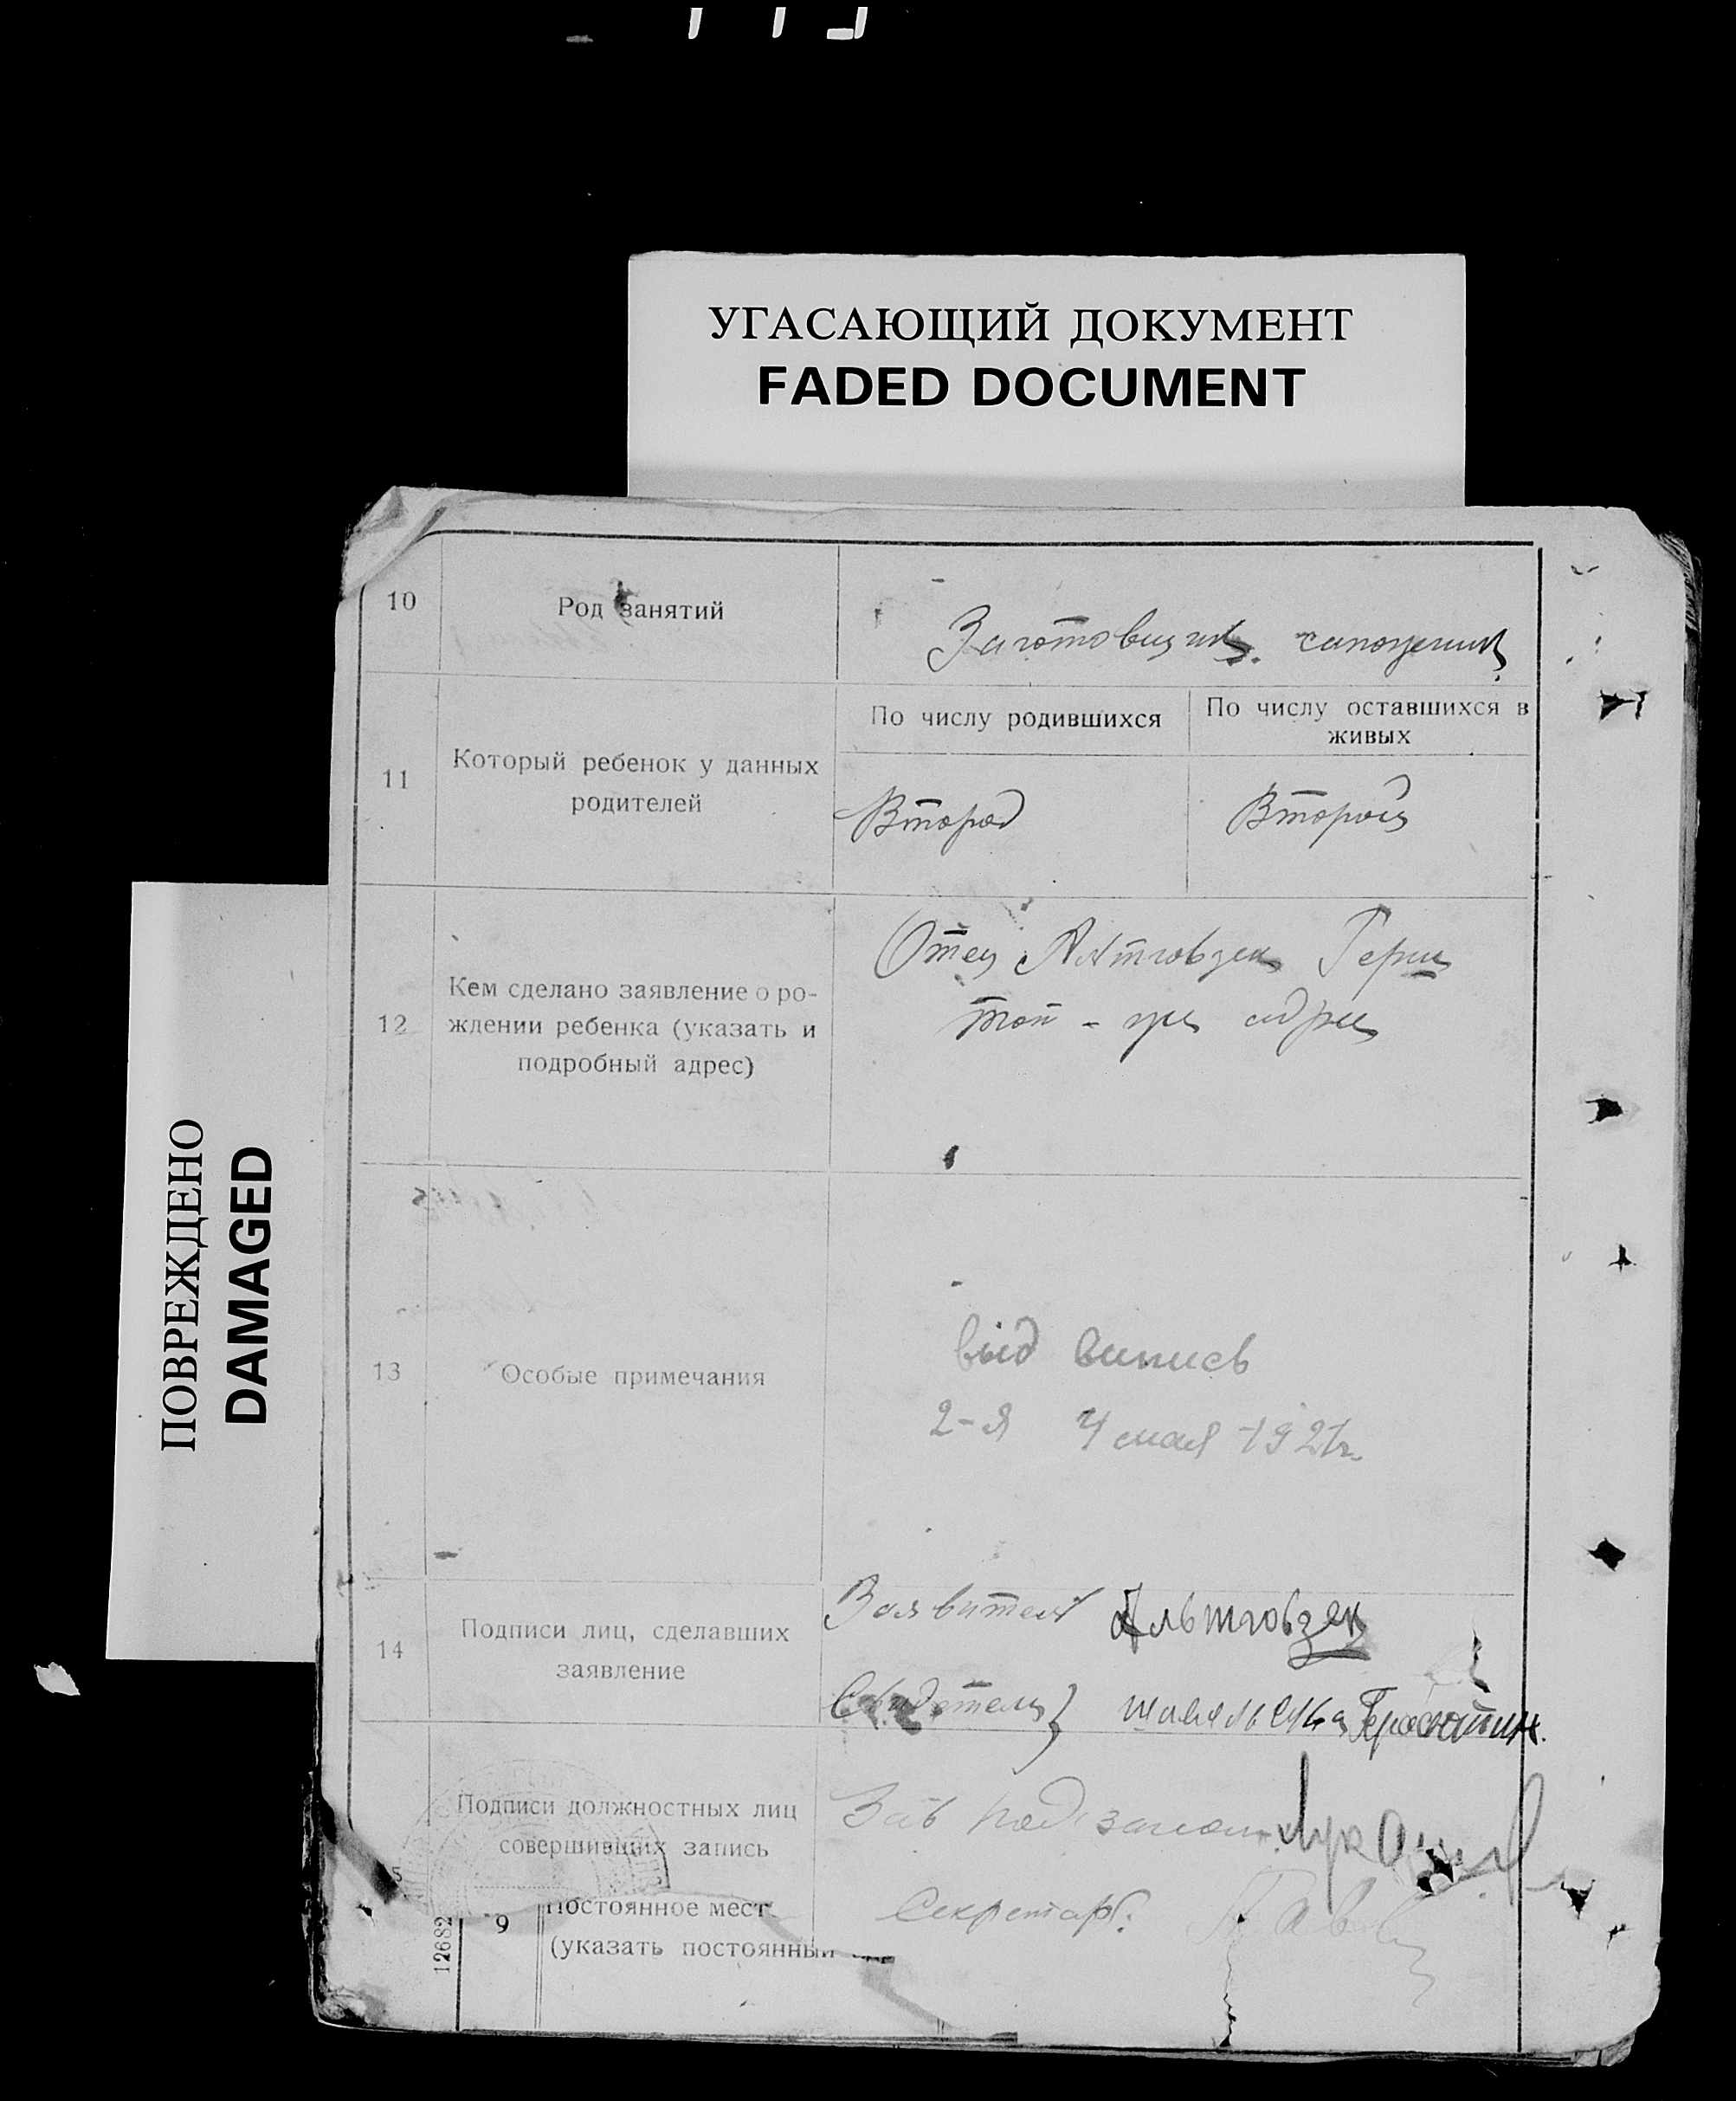 УГАСАЮЩИЙ ДОКУМЕНТ
FADED DOCUMENT
ПОВРЕЖДЕНО
DAMAGED
10
Род занятий
Заготовщик
11
Который ребенок у данных
родителей
По числу родившихся
По числу оставшихся в
живых
Второй
Второй
12
Кем сделано заявление о ро-
ждении ребенка (указать и
подробный адрес)
Отец Альтговзен Герш
той-же адрес
13
Особые примечания
выд выпись
2-я 4 мая 1921г.
14
Подписи лиц, сделавших
заявление
Заявитель Альтговзен
Свидетели
Подписи должностных лиц
совершивших запись
5
Зав
Секретарь:
9
Постоянное мест
(указать постоянный
12682